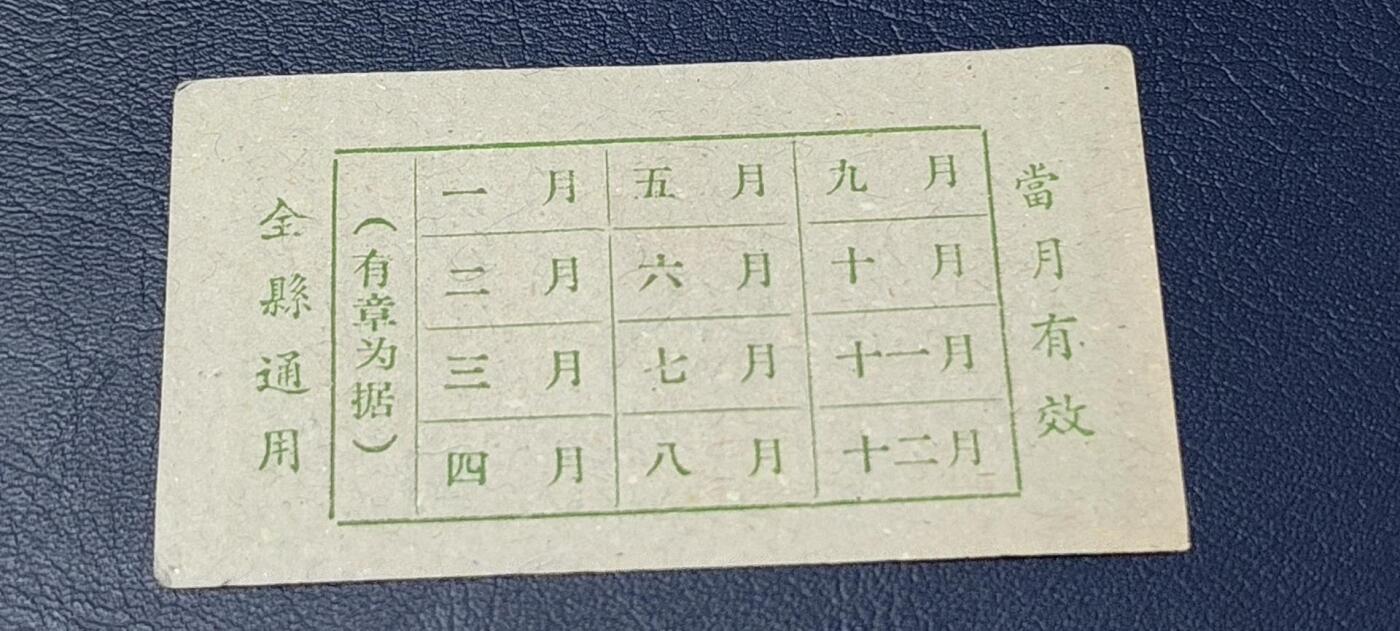 當月有效
全縣通用
（有章为据）
一月
二月
三月
四月
五月
六月
七月
八月
九月
十月
十一月
十二月